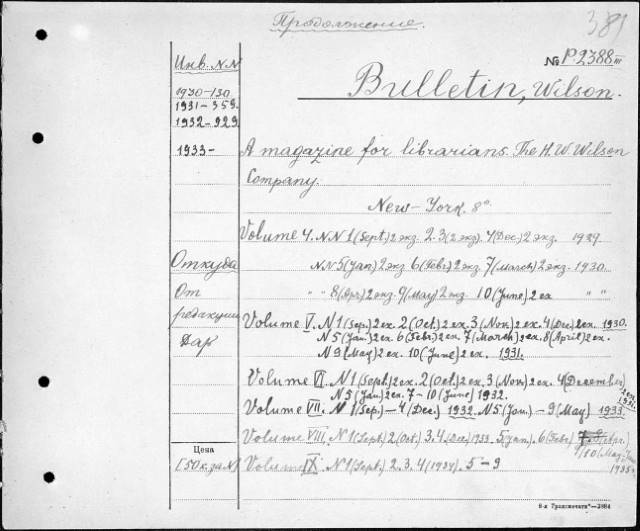 Продолжение.
381
Инв. NN
№ р.2388 III
Bulletin, Wilson.
1930-130
1931-359.
1932-929
1933-
A magazine for librarians. The H.W. Wilson
Company.
New-York. 8°
Volume 4. NN 1(Sept) 2 экз. 2. 3(2 экз). 4(Dec.) 2 экз. 1929
Откуда
NN 5(Jan) 2 экз 6(Febr) 2 экз. 7(March) 2 экз. 1930.
От
" " 8(Apr.) 2 экз. 9(May) 2 экз. 10(June) 2 ex " "
редакции
Volume V. N1(Sep.) 2 ex. 2(Oct.) 2 ex. 3(Nov.) 2 ex. 4(Dec.) 2 ex. 1930.
Дар
N5(Jan.) 2 ex. 6(Febr.) 2 ex. 7(March) 2 ex. 8(April) 2 ex.
N9(May) 2 ex. 10(June) 2 ex. 1931.
Volume VI. N1(Sept.) 2 ex. 2(Oct.) 2 ex. 3(Nov.) 2 ex. 4(December) 2 ex. 1931.
N5(Jan.) 2 ex. 7-10(June) 1932.
Volume VII. N 1(Sep.) — 4(Dec.) 1932. N5(Jan.) — 9(May) 1933.
Volume VIII. N1(Sept.) 2(Oct.) 3.4(Dec) 1933. 5(Jan). 6(Febr.) Apr.)
9/10(May-June 1935
Цена
[50 к. за N]
Volume IX N1(Sept.) 2. 3. 4(1934). 5-9
6-я Трансжелат"—3864